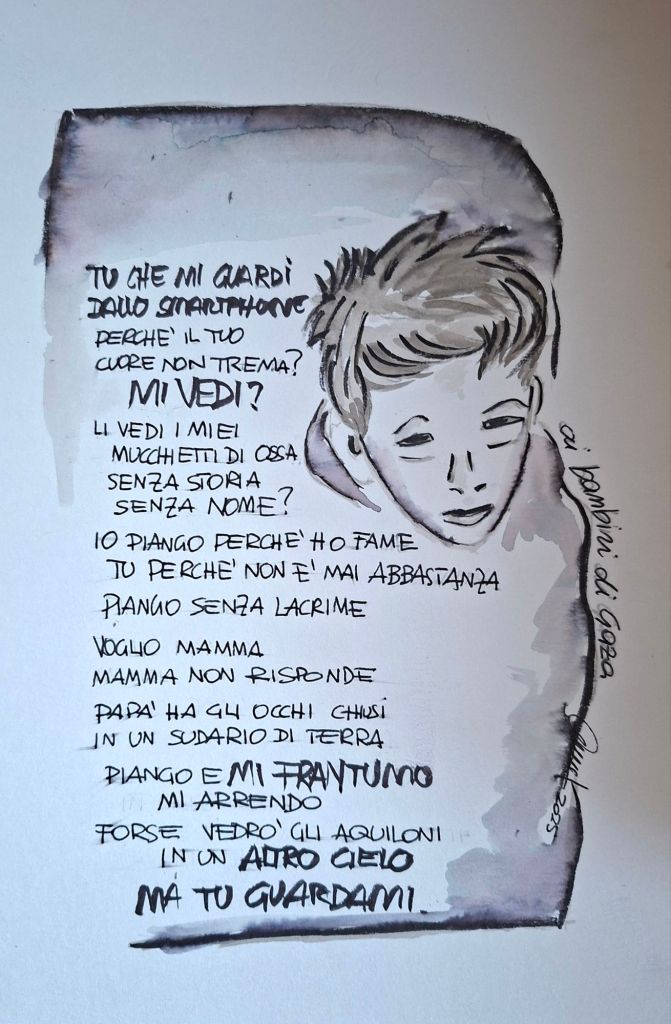 TU CHE MI GUARDI
DALLO SMARTPHONE
PERCHE' IL TUO
CUORE NON TREMA?
MI VEDI?
LI VEDI I MIEI
MUCCHETTI DI OSSA
SENZA STORIA
SENZA NOME?
IO PIANGO PERCHE' HO FAME
TU PERCHE' NON E' MAI ABBASTANZA
PIANGO SENZA LACRIME
VOGLIO MAMMA
MAMMA NON RISPONDE
PAPA' HA GLI OCCHI CHIUSI
IN UN SUDARIO DI TERRA
PIANGO E MI FRANTUMO
MI ARRENDO
FORSE VEDRO' GLI AQUILONI
IN UN ALTRO CIELO
MA TU GUARDAMI.
ai bambini di Gaza
2025